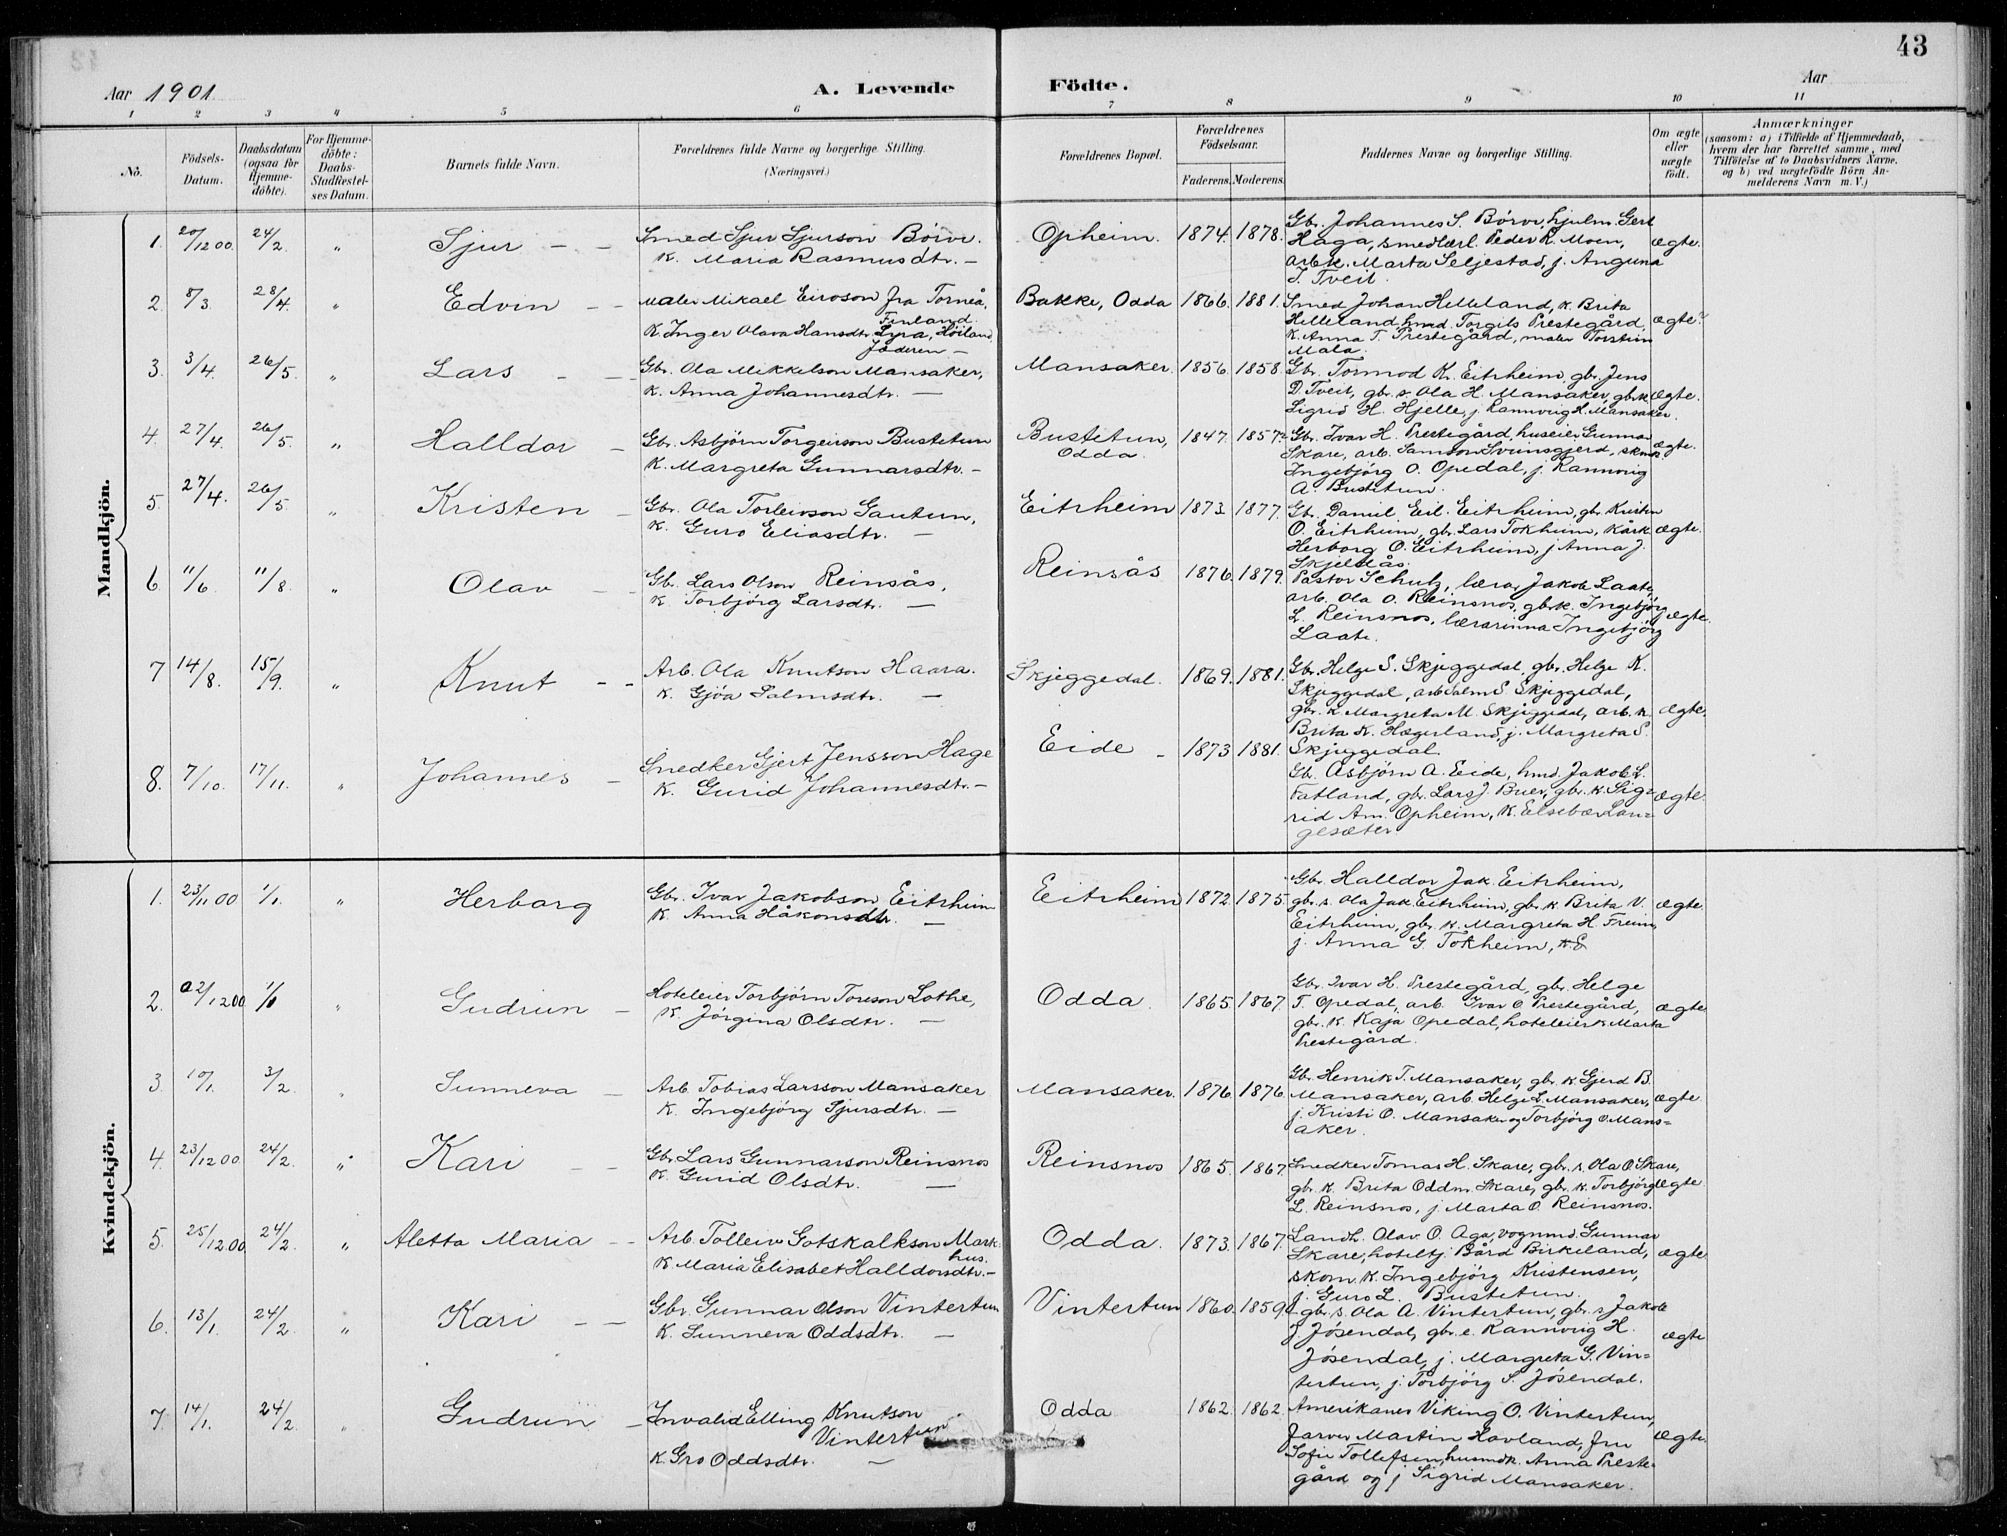 43
Aar 1901.
A. Levende Födte.
Aar
1 2 3 4 5 6 7 8 9 10 11
No.
Födsels-Datum.
Daabsdatum (ogsaa for Hjemme-döbte).
For Hjemme-döbte: Daabs-Stadfæstel-ses Datum.
Barnets fulde Navn.
Forældrenes fulde Navne og borgerlige Stilling. (Næringsvei.)
Forældrenes Bopæl.
Forældrenes Födselsaar.
Faderens. Moderens.
Faddernes Navne og borgerlige Stilling.
Om ægte eller uægte födt.
Anmærkninger
(saasom: a) i Tilfælde af Hjemmedaab,
hvem der har forrettet samme, med
Tilföielse af to Daabsvidners Navne.
og b) ved uægtefödte Börn An-
melderens Navn m. V.)
Mandkjön.
1. 20/12 00. 24/2. " Sjur — — Smed Sjur Sjurson Börve. Opheim. 1874. 1878. Gbr. Johannes S. Börve, hjulm. Gert
K. Maria Rasmusdtr. — Haga, smedlærl. Peder R. Moen, ægte.
arb.k. Marta Seljestad, j. Anguna
I. Tveit.
2. 8/3. 28/4. " Edvin — — Maler Mikael Eiroson fra Torneå, Bakke, Odda 1866. 1881. Smed Johan Helleland, k. Brita
Finland.
K. Inger Olava Hansdtr. Lyra, Höiland Helleland, hmd. Torgils Prestegård, ægte?
Jæderen — K. Anna T. Prestegård, maler Torstein
Mala.
3. 3/4. 26/5. " Lars — — Gbr. Ola Mikkelson Mansaker, Mansaker. 1856. 1858. Gbr. Tormod K. Eitrheim, gbr. Jens
K. Anna Johannesdtr. — D. Tveit, gbr. s. Ola H. Mansaker, gbr.k. ægte.
Sigrid H. Hjelle, j. Rannveig H. Mansaker.
4. 27/4. 26/5. " Halldor — Gbr. Asbjörn Torgeirson Bustetun Bustetun, Odda. 1847. 1857. Gbr. Ivar H. Prestegård, huseier Gunnar
K. Margreta Gunnarsdtr. — Skare, arb. Samson Sveinsgjerd, ægte.
Ingebjörg O. Opedal, j. Rannveig
A. Bustetun.
5. 27/4. 26/5. " Kristen — Gbr. Ola Torleivson Gautun, Eitrheim 1873. 1877. Gbr. Daniel Eil. Eitrheim, gbr. Kristen
K. Guro Eliasdtr. — O. Eitrheim, gbr. Lars Tokheim, kårk. ægte.
Herborg O. Eitrheim, j. Anna J.
Skjelås.
6. 11/6. 11/8. " Olav — — Gbr. Lars Olson Reinsås, Reinsås 1876. 1879. Pastor Schulz, lærar Jakob Laate,
K. Torbjörg Larsdtr. — arb. Ola O. Reinsnos, gbr.k. Ingebjörg
L. Reinsnos, lærarinna Ingebjörg ægte.
Laate.
7 14/8. 15/9. " Knut — — Arb. Ola Knutson Haara. Skjeggedal. 1869. 1881. Gbr. Helge S. Skjeggedal, gbr. Helge K.
K. Gjöa Salmsdtr. — Skjeggedal, arb. Salm S. Skjeggedal,
gbr. k. Margreta M. Skjeggedal, arb. k. ægte.
Brita K. Hægerland, j. Margreta S.
Skjeggedal.
8. 7/10. 17/11. " Johannes — Snedker Gjert Jensson Hage Eide — 1873 1881.
K. Gurid Johannesdtr. — Gbr. Asbjörn A. Eide, hmd. Jakob L.
Fatland, gbr. Lars J. Buer, gbr. k. Sig- ægte.
rid Am. Opheim, K. Elsebæ Lan-
gesæter
Kvindekjön.
1. 23/11 00 1/1. " Herborg Gbr. Ivar Jakobson Eitrheim Eitrheim 1872. 1875. Gbr. Halldor Jak. Eitrheim,
K. Anna Håkonsdtr. — gbr. s. Ola Jak. Eitrheim, gbr. k. Brita V. ægte.
Eitrheim, gbr. k. Margreta H. Freim,
j. Anna G. Tokheim, k. E
2. 02/12 00 1/1 " Gudrun — Hoteleier Torbjörn Toreson Lothe, Odda. 1865. 1867. Gbr. Ivar H. Prestegård, gbr. Helge
K. Jörgina Olsdtr. — T. Opedal, arb. Ivar O. Prestegård, ægte.
gbr. k. Kaja Opedal, hoteleier k. Marta
Prestegård.
3. 10/1. 3/2. " Sunneva — Arb. Tobias Larsson Mansaker Mansaker. 1876. 1876. Gbr. Henrik T. Mansaker, gbr. k. Gjerd B.
K. Ingebjörg Sjursdtr. — Mansaker, arb. Helge L. Mansaker, ægte
j. Kristi O. Mansaker og Torbjörg O. Mans-
aker.
4. 23/12 00. 24/2. " Kari — — Gbr. Lars Gunnarson Reinsnos Reinsnos 1865. 1867. Snedker Tomas H. Skare, gbr. s. Ola O. Skare,
K. Gurid Olsdtr. — gbr. k. Brita Oddm. Skare, gbr. k. Torbjörg ægte
L. Reinsnos, j. Marta O. Reinsnos.
5. 25/12 00. 24/2. " Aletta Maria — Arb. Tolleiv Gotskalkson Mark- Odda. 1873. 1867. Landh. Olav O. Aga, vognmd. Gunnar
hus.
K. Maria Elisabet Halldorsdtr. — Skare, hoteltj. Bård Birkeland, ægte
skom. k. Ingebjörg Kristensen,
j. Guro L. Bustetun.
6. 13/1. 24/2. " Kari — — Gbr. Gunnar Olson Vintertun Vintertun 1860. 1859. gbr. s. Ola A. Vintertun, gbr. s. Jakob
K. Sunneva Oddsdtr. — J. Jösendal, gbr. e. Rannveig H. ægte
Jösendal, j. Margreta G. Vin-
tertun, j. Torbjörg S. Jösendal.
7. 14/1. 24/2. " Gudrun — Invalid Elling Knutson Odda 1862. 1862. Amerikaner Viking O. Vintertun,
Vintertun. Farver Martin Havland, Fru ægte.
K. Gro Oddsdtr. — Sofie Tollefsen, husmdk. Anna Preste-
gård og j Sigrid Mansaker.